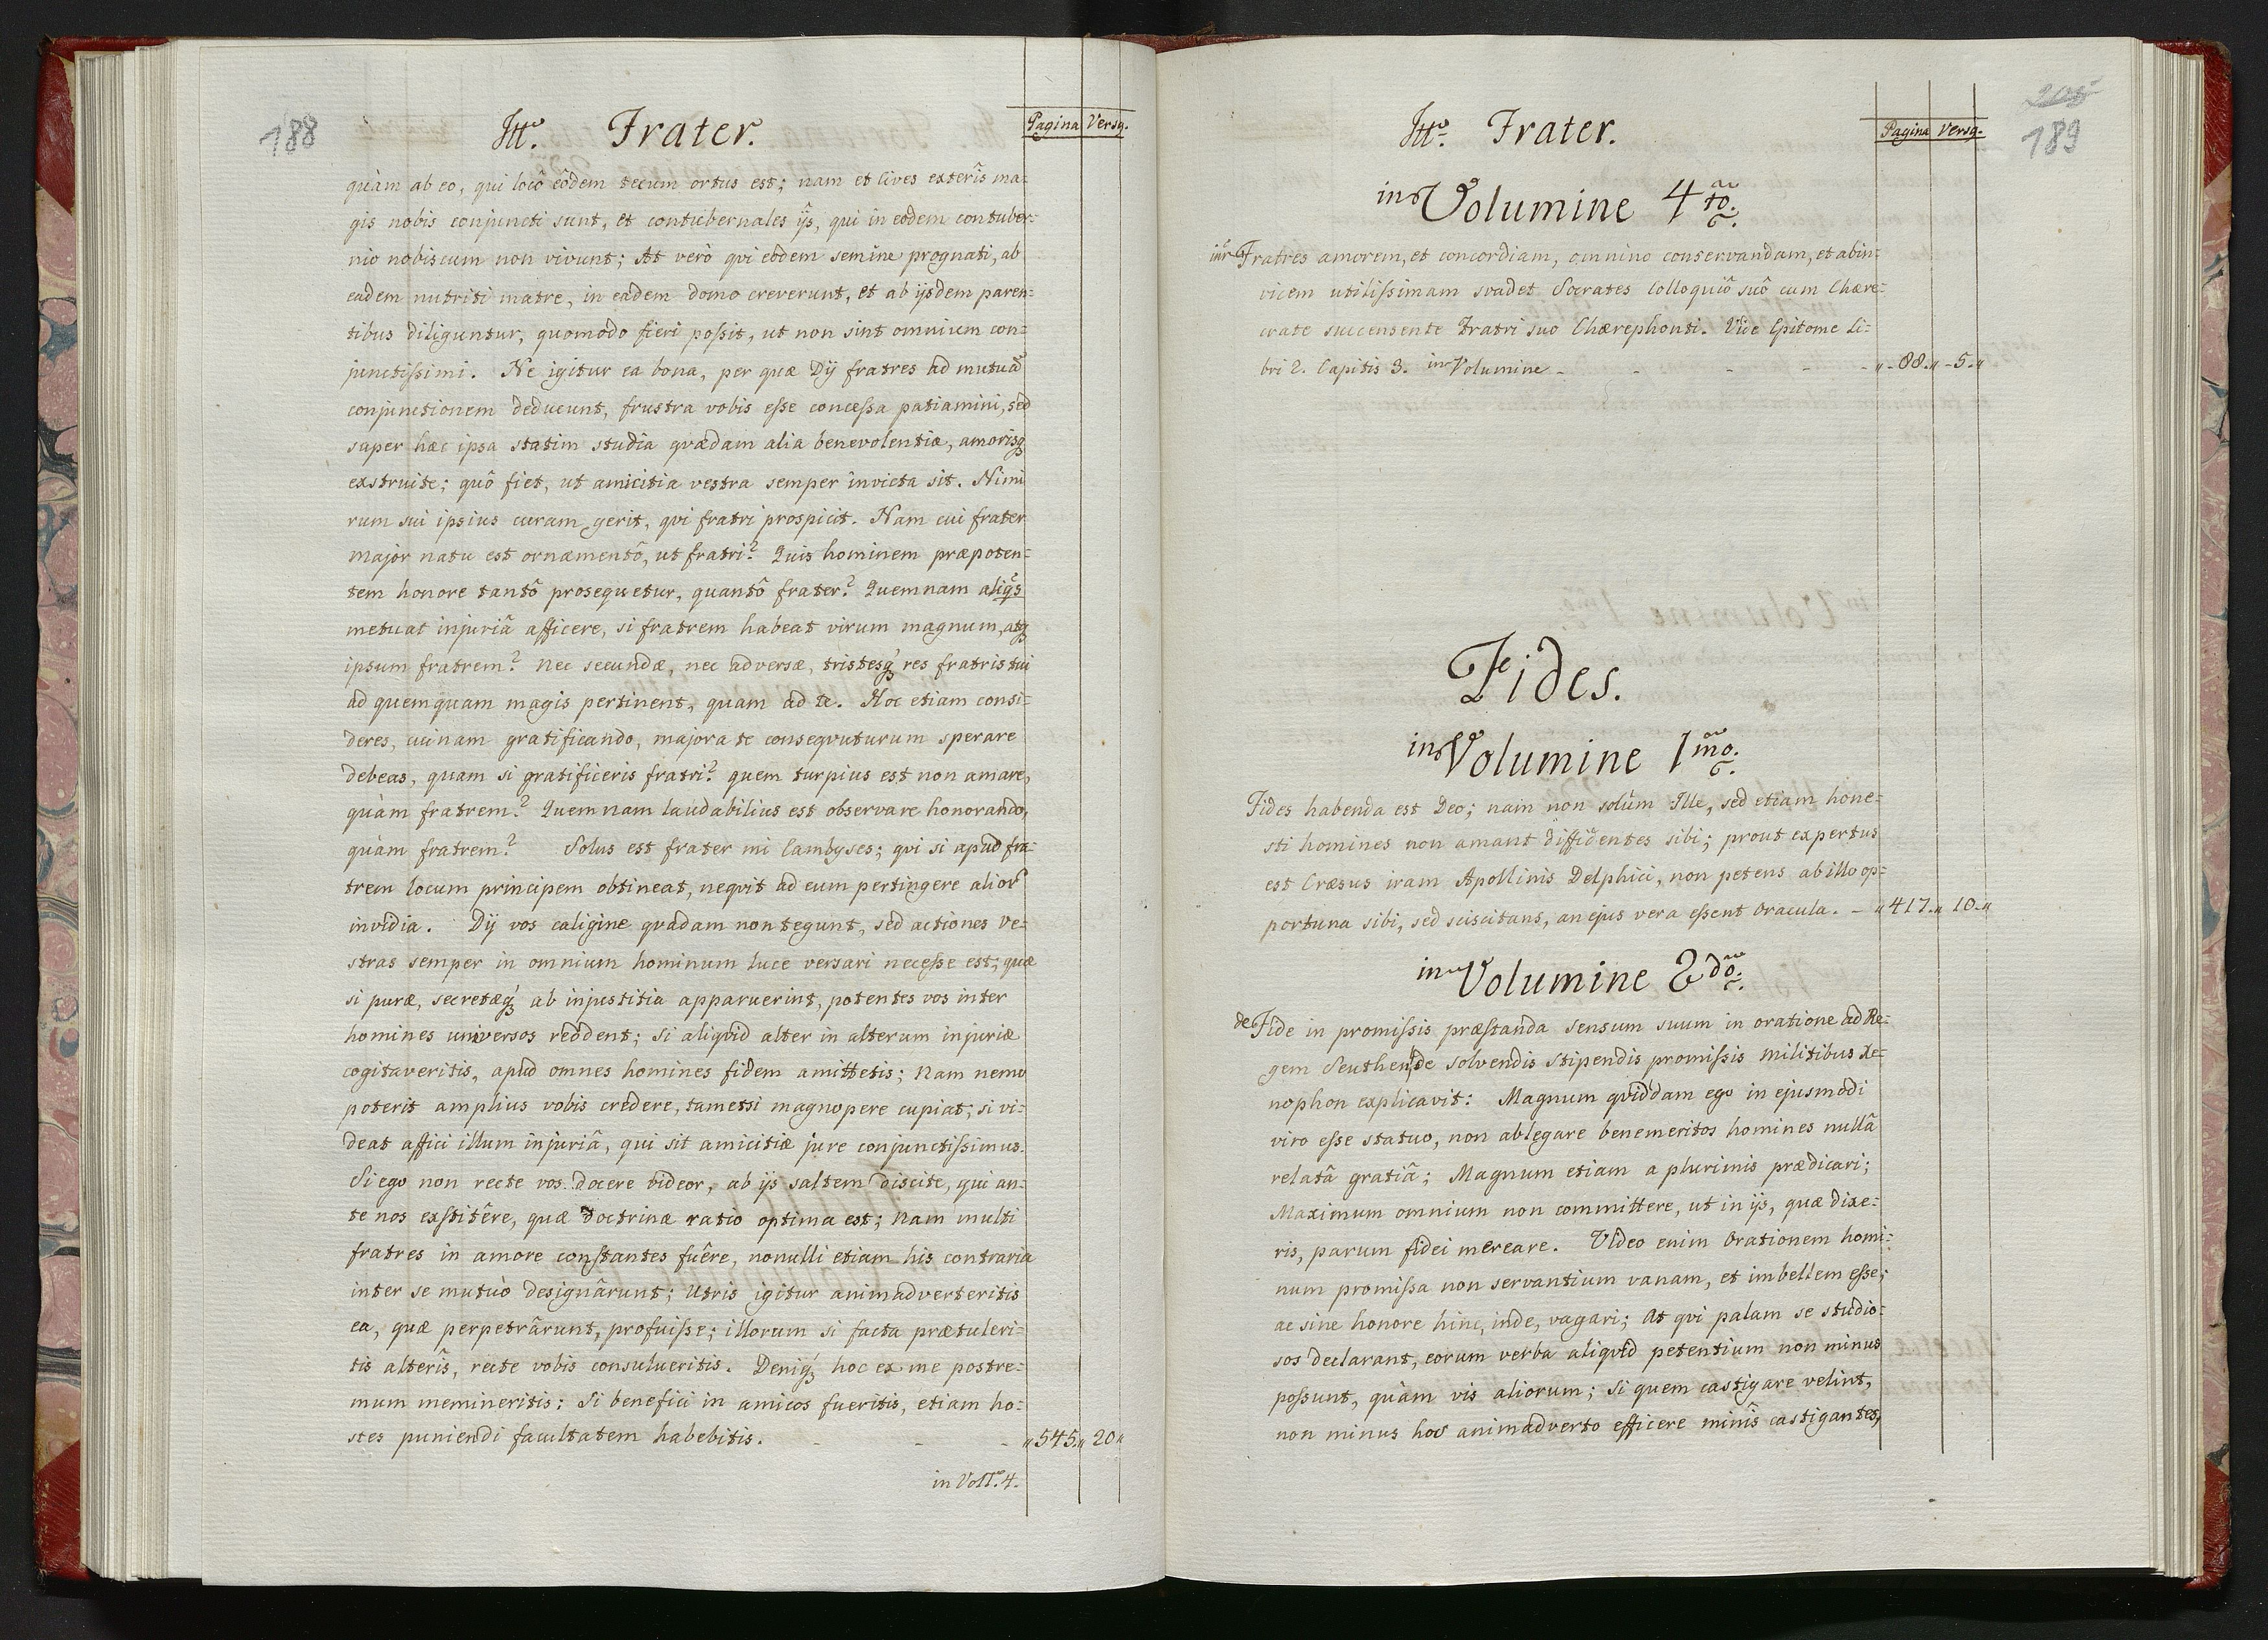 188
Itt. Frater.
Pagina Versq.
quàm ab eo, qui locô eôdem tecum ortus est; nam et Cives exterîs ma=
gis nobis conjuncti sunt, et contubernales ijs, qui in eodem contuber=
nio nobiscum non vivunt; At verò qvi eôdem semine prognati, ab
eadem nutriti matre, in eâdem domo creverunt, et ab ijsdem paren=
tibus diliguntur, quomodo fieri possit, ut non sint omnium con=
junctissimi. Ne igitur ea bona, per quæ Dij fratres ad mutuã
conjunctionem deducunt, frustra vobis esse concessa patiamini, sed
super hæc ipsa statim studia qvædam alia benevolentiæ, amorisq
exstruite; quô fiet, ut amicitia vestra semper invicta sit. Nimi
rum sui ipsius curam gerit, qvi fratri prospicit. Nam cui frater
major natu est ornamentô, ut fratri? Quis hominem præpoten=
tem honore tantô prosequetur, quantô frater? Quemnam aliqs
metuat injuriâ afficere, si fratrem habeat virum magnum, atq
ipsum fratrem? nec secundæ, nec adversæ, tristesq res fratris tui
ad quemquam magis pertinent, quam ad te. Hoc etiam consi=
deres, cuinam gratificando, majora te conseqvuturum sperare
debeas, quam si gratificeris fratri? quem turpius est non amare,
quàm fratrem? Quemnam laudabilius est observare honorando,
quàm fratrem? Solus est frater mi Cambyses; qvi si apud fra=
trem locum principem obtineat, neqvit ad eum pertingere alior
invidia. Dij vos caligine qvadam non tegunt, sed actiones ve=
stras semper in omnium hominum luce versari necesse est; quæ
si puræ, secretæq ab injustitia apparuerint, potentes vos inter
homines universos reddent; si aliqvid alter in alterum injuriæ
cogitaveritis, apud omnes homines fidem amittetis; Nam nemo
poterit amplius vobis credere, tametsi magnopere cupiat; si vi=
deat affici illum injuriâ, qui sit amicitiæ jure conjunctissimus.
Si ego non recte vos docere bideor, ab ijs saltem discite, qui an=
te nos exstitêre, quæ doctrinæ ratio optima est; Nam multi
fratres in amore constantes fuêre, nonulli etiam his contraria
inter se mutuò designârunt; Utris igitur animadverteritis
ea, quæ perpetrârunt, profuisse; illorum si facta prætuleri=
tis alterîs, recte vobis consulueritis. Deniq hoc ex me postre=
mum memineritis: Si benefici in amicos fueritis, etiam ho=
stes puniendi facultatem habebitis. - - - „545.„ 20„
in Voll. 4.
205
189
Itt. Frater.
Pagina Versq.
in Volumine 4to.
inr Fratres amorem, et concordiam, omnino conservandam, et abin=
vicem utilissimam svadet Socrates Colloquiô suô cum Chære=
crate succensente Fratri suo Chærephonti. Vide Epitome Li=
bri 2. Capitis 3. in Volumine - - - - - „-88.„-5.„
Fides.
in Volumine 1mo.
Fides habenda est Deo; nam non solùm Ille, sed etiam hone=
sti homines non amant diffidentes sibi; prout expertus
est Cræsus iram Apollinis Delphici, non petens ab illo op=
portuna sibi, sed sciscitans, an ejus vera essent Oracula. - „417.„ 10.„
in Volumine 2do.
de Fide in promissis præstanda sensum suum in oratione ad Re=
gem Seuthen, de solvendis stipendis promissis militibus Xe=
nophon explicavit: Magnum qviddam ego in ejusmodi
viro esse statuo, non ablegare benemeritos homines nullâ
relatâ gratiâ; Magnum etiam a plurimis prædicari;
Maximum omnium non committere, ut in ijs, quæ dixe=
ris, parum fidei mereare. Video enim Orationem homi=
num promissa non servantium vanam, et imbellem esse;
ac sine honore hinc, inde, vagari; At qvi palam se studio=
sos declarant, eorum verba aliqvid petentium non minus
possunt, quàm vis aliorum; Si quem castigare velint,
non minus hos animadverto efficere minîs castigantes,